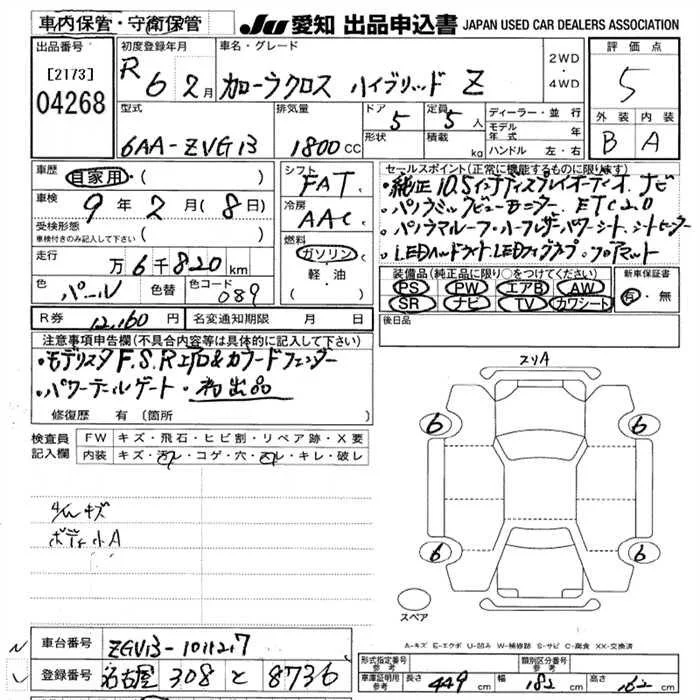 車内保管・守衛保管
JU 愛知 出品申込書 JAPAN USED CAR DEALERS ASSOCIATION
出品番号
[2173]
04268
初度登録年月
R 6 2月
車名・グレード
カローラクロス ハイブリッド Z
2WD
・
4WD
評価点
5
外装 内装
B A
型式
6AA-ZVG13
排気量
1800 CC
ドア 5
定員 5 人
形状
積載 kg
ディーラー・並行
モデル年式 年
ハンドル 左・右
車歴
自家用・( )
車検 9年 2月(8日)
受検形態
車検付きのみ記入して下さい( )
走行
万 6千820 km
色 パール 色替 色コード 089
シフト
FAT
冷房
AAC
燃料
ガソリン
軽・油
( )
セールスポイント(正常に機能するものに限ります)
・純正10.5インチディスプレイオーディオ.ナビ
・パノラミックビューモニター. ETC2.0
・パノラマルーフ・ハーフレザーパワーシート.シートヒーター
・LEDヘッドライト.LEDフォグランプ・フロアマット
装備品(純正品に限り○をつけてください)
PS PW エアB AW
SR ナビ TV カワシート
新車保証書
有・無
R券 12,160円 名変通知期限 月 日
後日品
注意事項申告欄(不具合内容等は具体的に記入して下さい)
・モデリスタ F.S.Rエアロ&カラードフェンダー
・パワーテールゲート・初出品
修復歴 有(箇所 )
検査員記入欄
FW キズ・飛石・ヒビ割・リペア跡・X要
内装 キズ・汚レ・コゲ・穴・スレ・キレ・破レ
キズ
ボディ小A
スリA
6 6
6 6
スペア
A-キズ E-エクボ U-凹み W-補修跡 S-サビ C-腐食 XX-交換済
車台番号 ZGV13-1011217
登録番号 名古屋 308 と 8736
形式指定番号 参考
類別区分番号 参考
車庫証明用参考 長さ 449 cm 幅 182 cm 高さ 162 cm